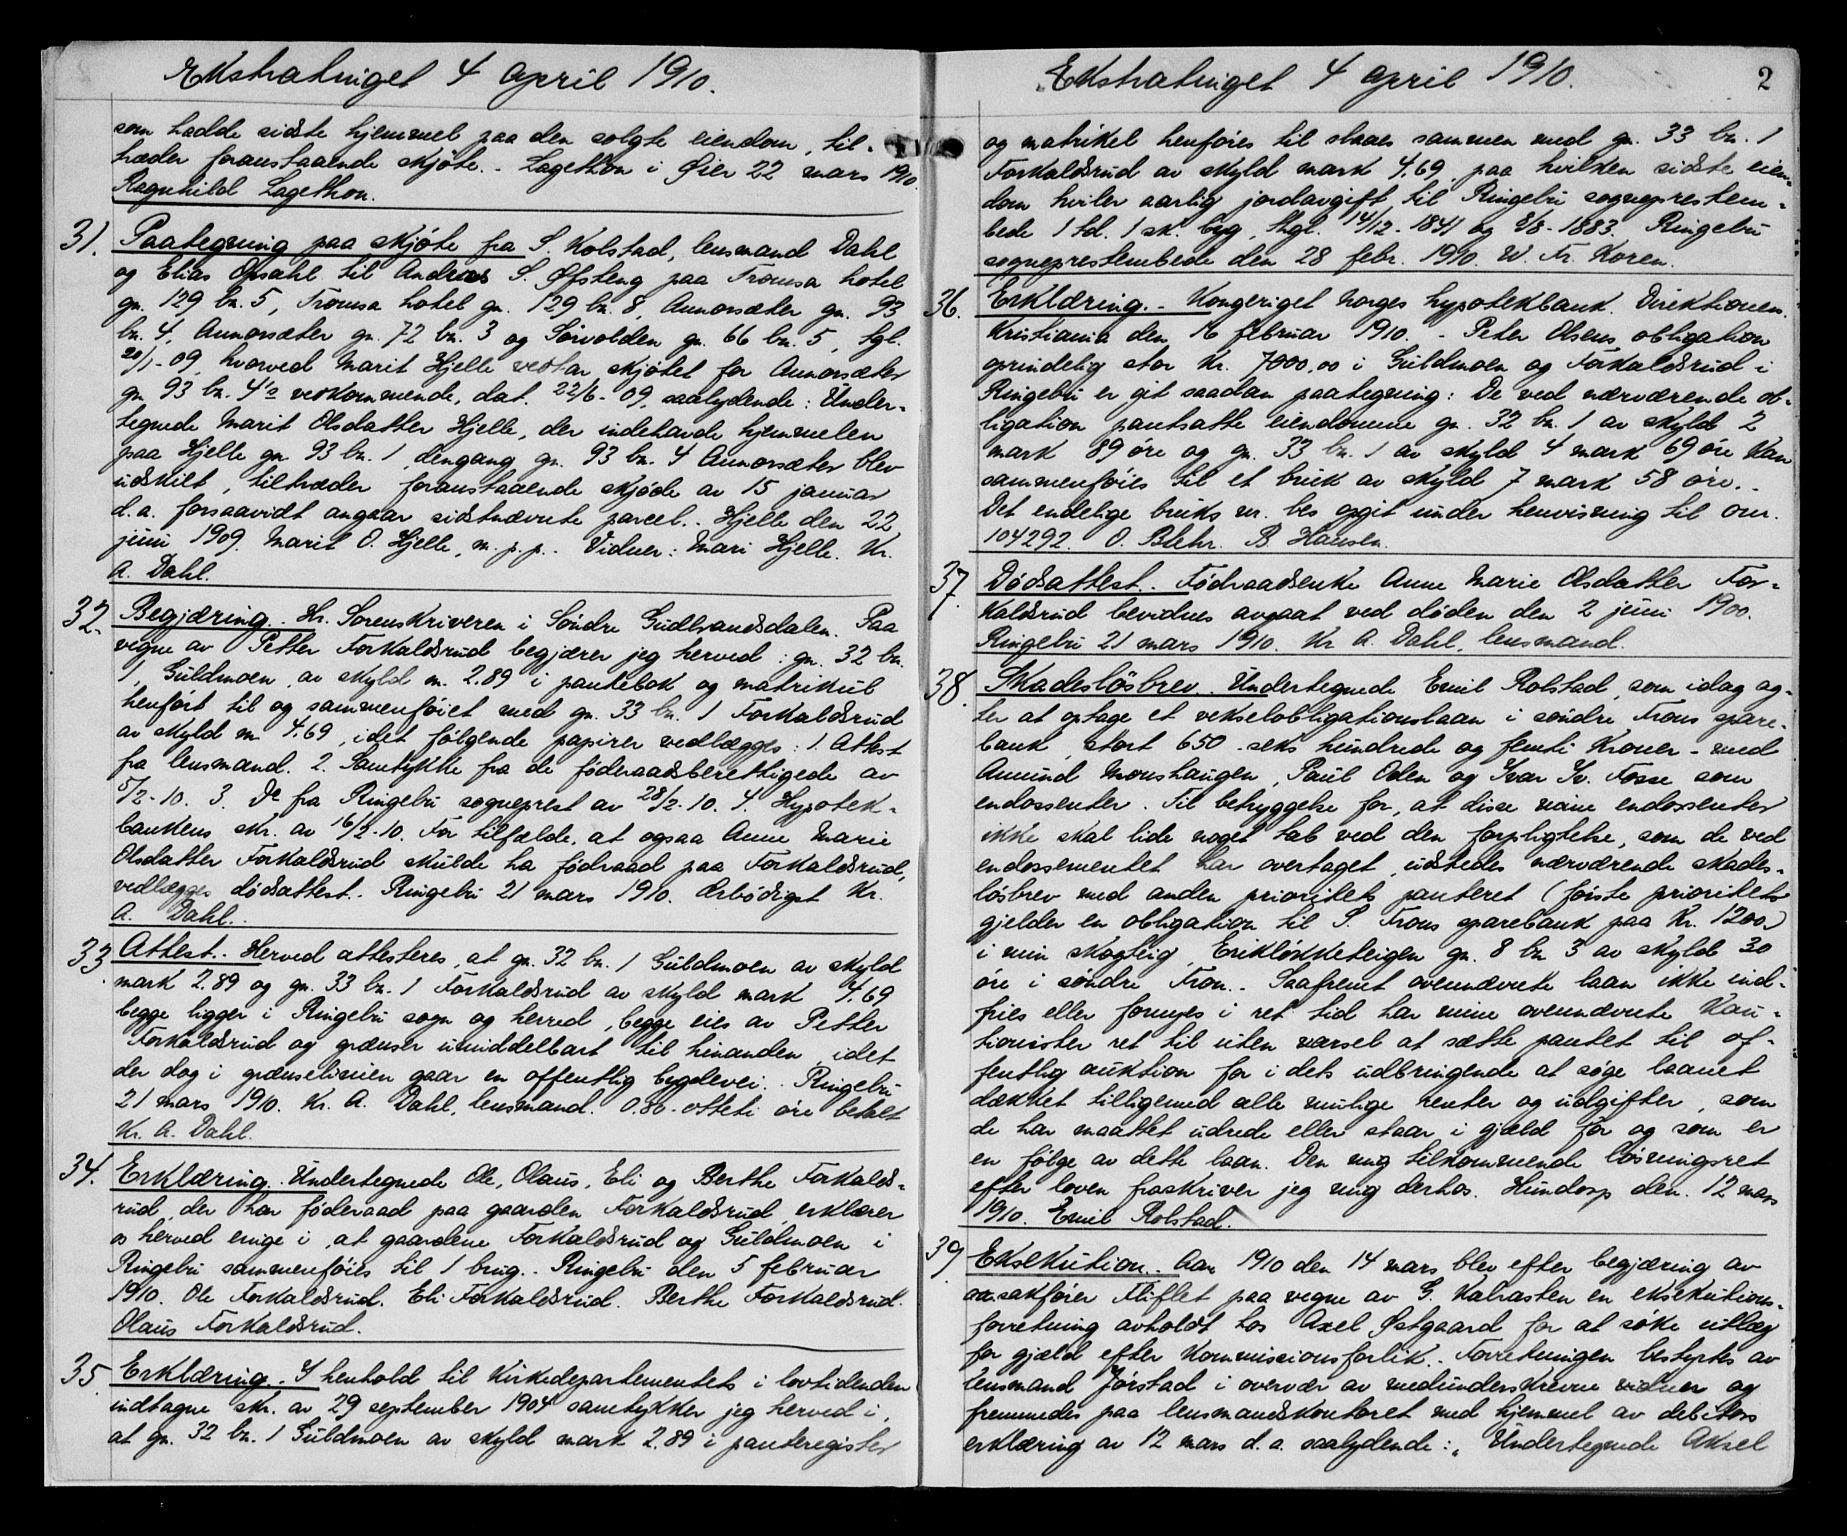 Ekstratinget 4 april 1910.
som hadde sidste hjemmel paa den solgte eiendom, til-
træder foranstaaende skjøte. - Lagethon i Øier 22 mars 1910.
Ragnhild Lagethon.
31. Paategning paa skjøte fra S. Kolstad, lensmand Dahl
og Elias Opsahl til Andreas S. Øfsteng paa Tromsa hotel
gn. 129 bn. 5, Tromsa hotel gn. 129 bn. 8, Annorsæter gn. 93
bn. 4, Annorsæter gn. 72 bn. 3 og Sørvolden gn. 66 bn. 5, tgl.
20/1-09, hvorved Marit Hjelle vedtar skjøtet for Annorsæter
gn 93 bn. 4's vedkommende, dat. 22/6-09, saalydende: Under-
tegnede Marit Olsdatter Hjelle, der indehavde hjemmelen
paa Hjelle gn 93 bn. 1, dengang gn. 93 bn. 4 Annorsæter blev
udskilt, tiltræder foranstaaende skjøde av 15 januar
d.a. forsaavidt angaar sidstnævnte parcel. - Hjelle den 22
juni 1909. Marit O. Hjelle, m. p. p. - Vidner: Mari Hjelle. Kr.
A. Dahl.
32. Begjæring. - Hr. Sorenskriveren i Søndre Gudbrandsdalen. Paa
vegne av Petter Forkalsrud begjærer jeg herved: gn. 32 bn.
1, Guldmoen, av skyld m. 2.89 i pantebok og matrikul
henført til og sammenføiet med gn. 33 bn. 1 Forkalsrud
av skyld m 4.69, idet følgende papirer vedlægges: 1. Attest
fra lensmand. 2. Samtykke fra de føderaadsberettigede av
5/2-10. 3. Do fra Ringebu sogneprest av 28/2-10. 4. Hypotek-
bankens skr. av 16/2-10. For tilfælde, at ogsaa Anne Marie
Olsdatter Forkalsrud skulde ha føderaad paa Forkalsrud,
vedlægges dødsattest. - Ringebu 21 mars 1910. Ærbødigst Kr.
A. Dahl. -
33. Attest. - Herved attesteres, at gn. 32 bn. 1 Guldmoen av skyld
mark 2.89 og gn. 33 bn. 1 Forkalsrud av skyld mark 4.69
begge ligger i Ringebu sogn og herred, begge eies av Petter
Forkalsrud og grænser umiddelbart til hinanden, idet
der dog i grænselinien gaar en offentlig bygdevei. - Ringebu
21 mars 1910. Kr. A. Dahl, lensmand. 0.80 - otteti øre betalt
Kr. A. Dahl.
34. Erklæring. - Undertegnede Ole, Olaus, Eli og Berthe Forkals-
rud, der har føderaad paa gaarden Forkalsrud erklærer
os herved enige i, at gaardene Forkalsrud og Guldmoen i
Ringebu sammenføies til 1 brug. - Ringebu den 5 februar
1910. Ole Forkalsrud. Eli Forkalsrud. Berthe Forkalsrud.
Olaus Forkalsrud.
35. Erklæring. - I henhold til Kirkedepartementets i lovtidenden
indtagne skr. av 29 september 1904 samtykker jeg herved i,
at gn. 32 bn. 1 Guldmoen av skyld mark 2.89 i panteregister
Ekstratinget 4 april 1910. 2
og matrikel henføres til slaaes sammen med gn. 33 bn. 1
Forkalsrud av skyld mark 4.69, paa hvilken sidste eien-
dom hviler aarlig jordavgift til Ringebu sogneprestem-
bede 1 td. 1 sk. byg, tgl. 14/12-1841 og 8/8-1883. Ringebu
sogneprestembede den 28 febr. 1910. W. Fr. Koren.
36. Erklæring. - Kongeriget Norges hypotekbank. Direktionen.
Kristiania den 16 februar 1910. - Peter Olsens obligation
oprindelig stor kr. 7000,00 i Guldmoen og Forkalsrud i
Ringebu er git saadan paategning: De ved nærværende ob-
ligation pantsatte eiendomme gn. 32 bn. 1 av skyld 2
mark 89 øre og gn. 33 bn. 1 av skyld 4 mark 69 øre kan
sammenføies til et bruk av skyld 7 mark 58 øre. -
Det endelige bruks nr. bes opgit under henvisning til our.
104292. O. Blehr. B. Hansen.
37. Dødsattest. - Føderaadsenke Anne Marie Olsdatter For-
kalsrud bevidnes avgaat ved døden den 2 juni 1900.
Ringebu 21 mars 1910. Kr A. Dahl, lensmand.
38. Skadesløsbrev. Undertegnede Emil Rolstad, som idag ag-
ter at optage et vekselobligationslaan i søndre Frons spare-
bank, stort 650 - seks hundrede og femti kroner - med
Amund Monshaugen, Paul Oden og Ivar Iv. Fosse som
endossenter. Til betryggelse for, at disse mine endossenter
ikke skal lide noget tab ved den forpligtelse, som de ved
endossementet har overtaget, udstedes nærværende skades-
løsbrev med anden prioritets panteret (første prioritets
gjelder en obligation til S. Frons sparebank paa kr. 1200.)
i min skogteig, Erikløkketeigen gn. 8 bn 3 av skyld 30
øre i søndre Fron. - Saafremt ovennævnte laan ikke ind-
fries eller fornyes i ret tid har mine ovennævnte kau-
tionister ret til uten varsel at sætte pantet til of-
fentlig auktion for i dets udbringende at søge laanet
dækket tilligemed alle mulige renter og udgifter, som
de har maattet udrede eller staar i gjæld for og som er
en følge av dette laan. Den mig tilkommende løsningsret
efter loven fraskriver jeg mig derhos. Hundorp den. 12 mars
1910. Emil Rolstad.
39. Eksekution. - Aar 1910 den 14 mars blev efter begjæring av
o.r.sakfører Fliflet paa vegne av G. Kalrasten en eksekutions-
forretning avholdt hos Axel Østgaard for at søke utlæg
for gjæld efter kommissionsforlik. - Forretningen bestyrtes av
lensmand Jørstad i overvær av medunderskrevne vidner og
fremmedes paa lensmandskontoret med hjemmel av debitors
erklæring av 12 mars d. a. saalydende: „Undertegnede Aksel